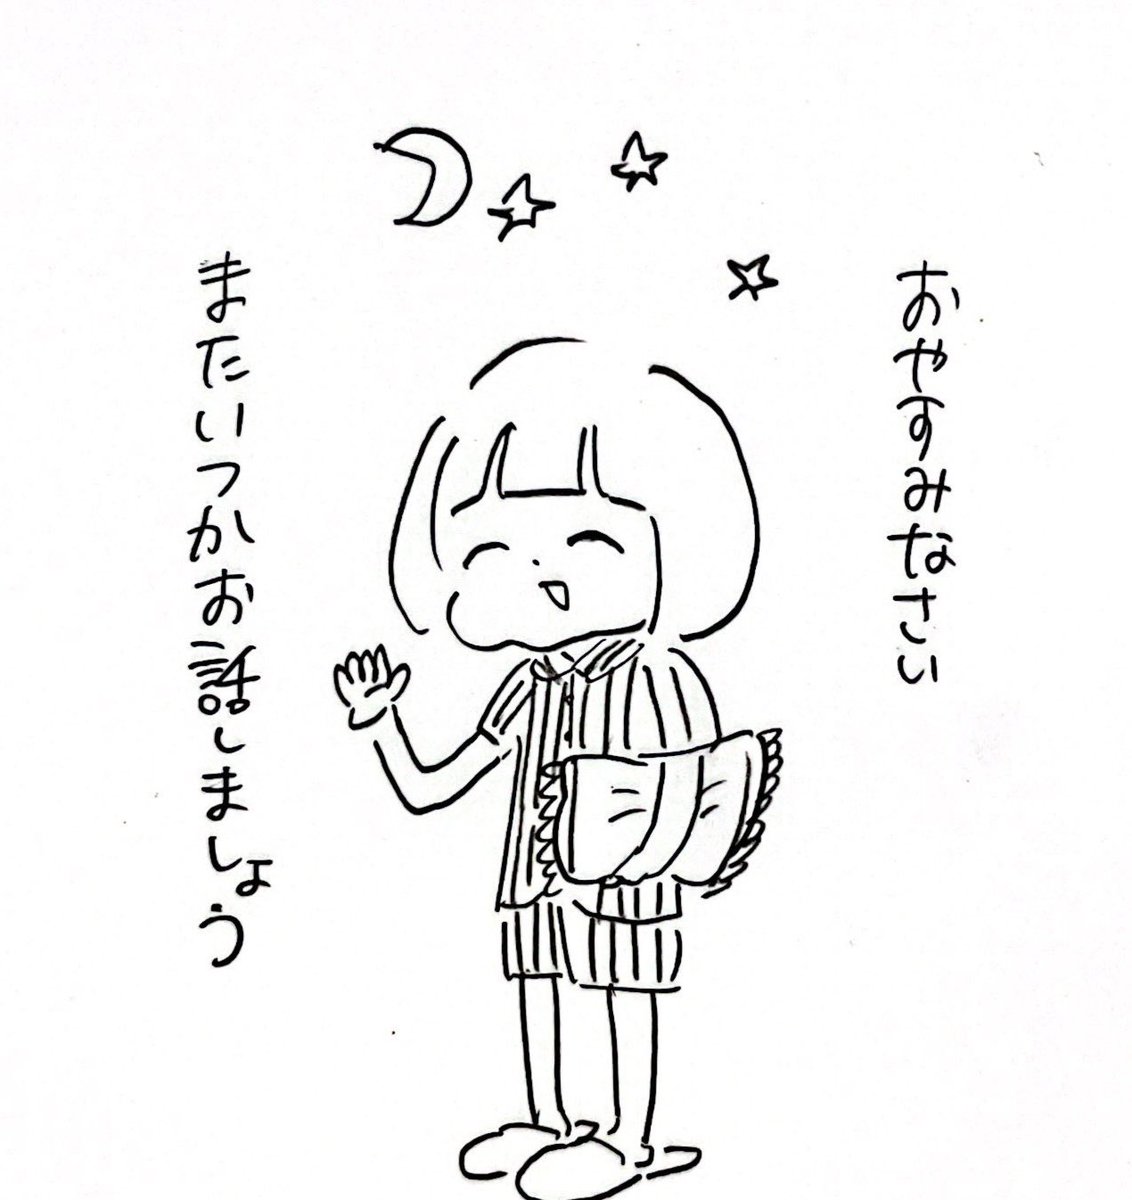 おやすみなさい
またいつかお話しましょう